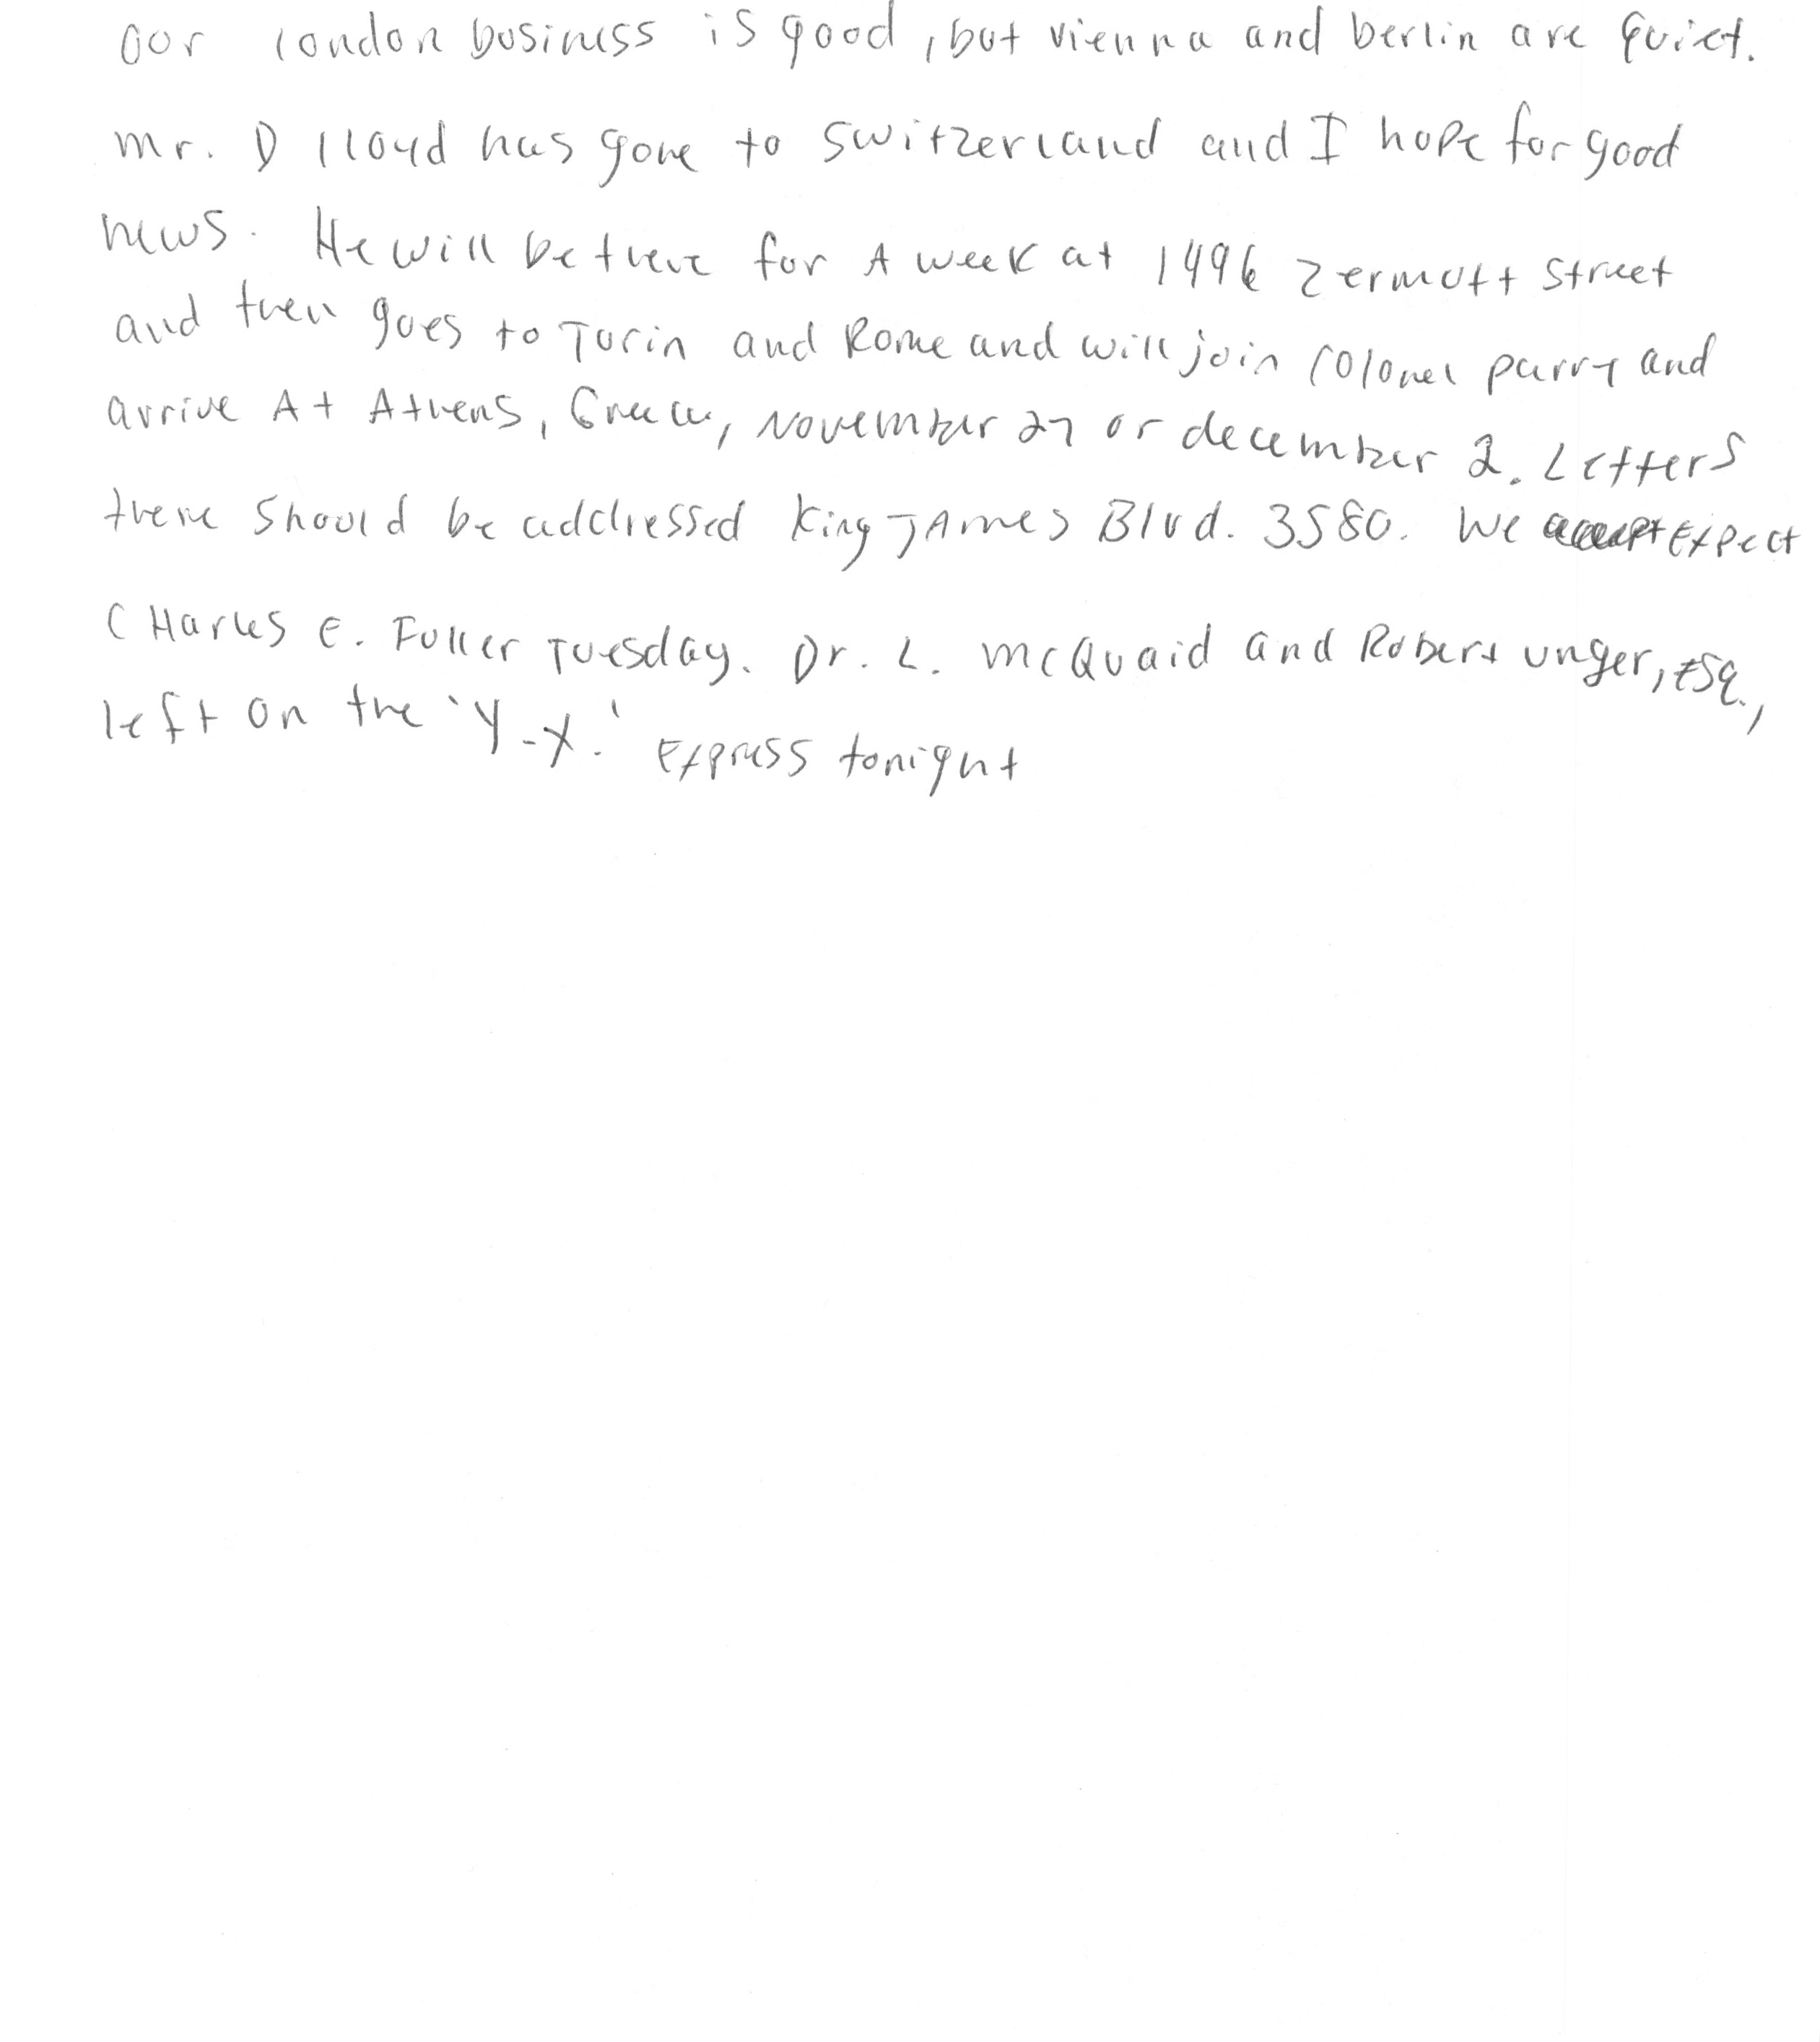 our london business is good, but vienna and berlin are quiet.
mr. D lloyd has gone to switzerland and I hope for good
news. He will be there for A week at 1496 zermott street
and then goes to Turin and Rome and will join Colonel parry and
arrive At Athens, Greece, November 27 or december 2. Letters
there should be addressed King JAmes Blvd. 3580. We expect
CHarles E. Fuller Tuesday. Dr. L. mcQuaid and Robert unger, Esq.,
left on the 'Y-X.' Express tonight